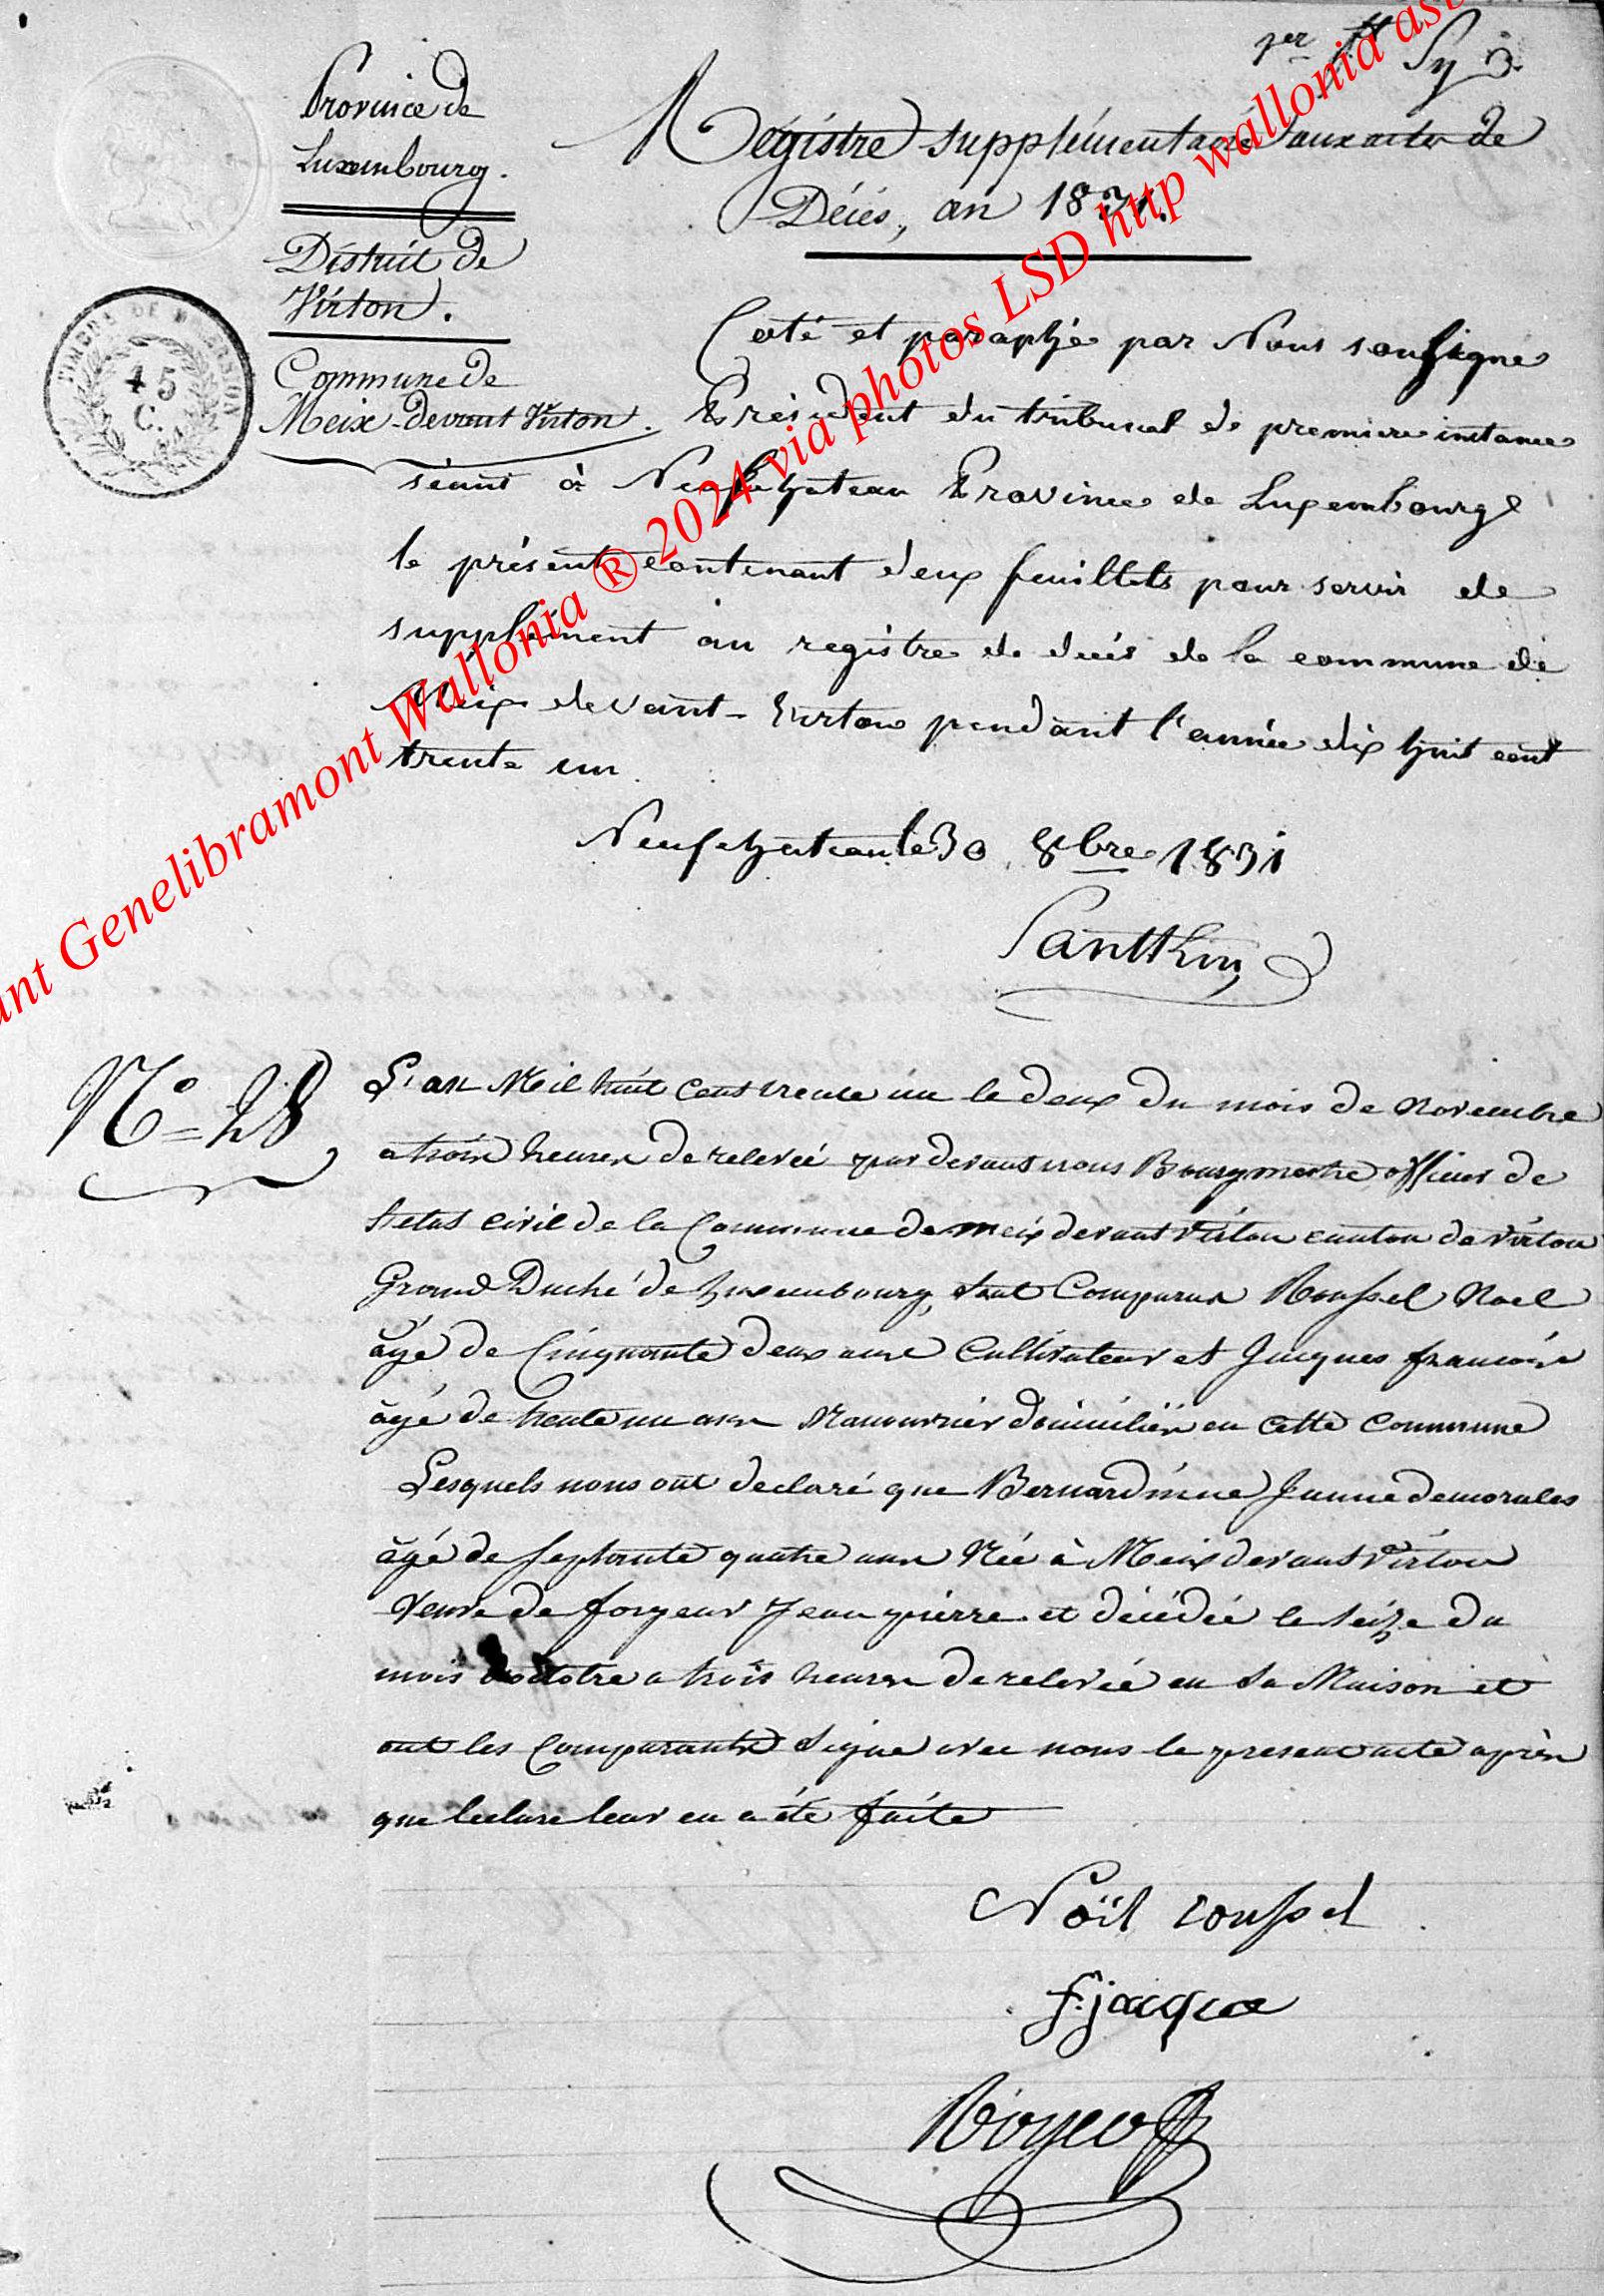 1er
Province de
Luxembourg.
District de
Virton.
Commune de
Meix-devant Virton.
TIMBRE DE DIMENSION
45
C.
Régistre supplémentaire aux actes de
Décés, an 1831.
Coté et paraphé par Nous soussigné
Président du tribunal de premiere instance
séant à Neufchateau Province de Luxembourg
le présent contenant deux feuillets pour servir de
supplément au registre de décés de la commune de
Meix devant-Virton pendant l'année dix huit cent
trente un.
Neufchateau le 30 8bre 1831
N° 28
L'an Mil huit Cent trente un le deux du mois de Novembre
a trois heures de relevée par devant nous Bourgmestre officier de
l'etat civil de la Commune de Meix devant Virton canton de Virton
Grand Duché de Luxembourg, sont Comparus Roussel Noel
âgé de Cinquante deux ans Cultivateur et Jacques francois
âgé de trente un ans Manouvrier domiciliés en cette Commune
Lesquels nous ont declaré que Bernardinne Jeanne demorales
âgé de septante quatre ans Née à Meix devant Virton
Veuve de forgeur Jean pierre et décédée le seize du
mois d'octobre a trois heures de relevée en sa Maison et
ont les Comparants Signé avec nous le present acte après
que lecture leur en a été faite
Noël roussel
f. jacque
ant Genelibramont Wallonia ® 2024 via photos LSD http wallonia ast